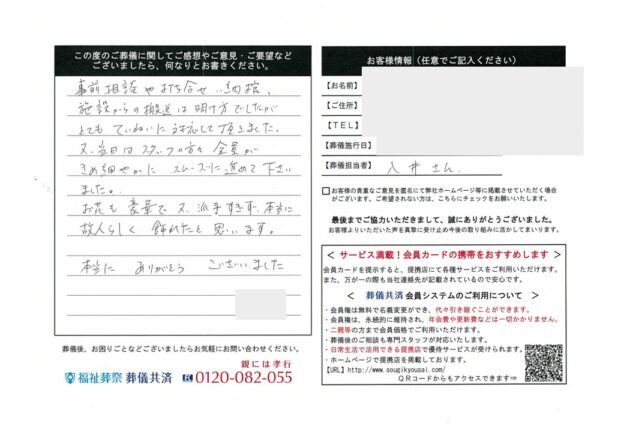 この度のご葬儀に関してご感想やご意見・ご要望など
ございましたら、何なりとお書きください。
事前相談や打ち合せ、納棺、
施設からの搬送は明け方でしたが
とてもていねいに対応して頂きました。
又、当日はスタッフの方々全員が
きめ細やかに スムーズに進めて下さい
ました。
お花も豪華で又、派手すぎず、本当に
故人らしく 飾れたと思います。
本当に ありがとう ございました
葬儀後、お困りごとなどございましたらお気軽にお問い合わせください。
親には孝行
福祉葬祭 葬儀共済 0120-082-055
お客様情報（任意でご記入ください）
【お名前】
【ご住所】
【ＴＥＬ】
【葬儀施行日】
【葬儀担当者】 入井さん
お客様の貴重なご意見を匿名にて弊社ホームページ等に掲載させていただく場合
がございます。ご希望されない方は、こちらにチェックをお願いいたします。
最後までご協力いただきまして、誠にありがとうございました。
お客様よりいただいた声を真摯に受け止め今後の取り組みに活かしてまいります。
＜ サービス満載！会員カードの携帯をおすすめします ＞
会員カードを提示すると、提携店にて各種サービスをご利用いただけます。
また、万が一の際も当社連絡先が記載されているので安心です。
＜ 葬儀共済 会員システムのご利用について ＞
・会員権は無料で名義変更ができ、代々引き継ぐことができます。
・会員権は、永続的に維持され、年会費や更新費などは一切かかりません。
・二親等の方まで会員価格でご利用いただけます。
・葬儀後のご相談も専門スタッフが対応いたします。
・日常生活で活用できる提携店で優待サービスが受けられます。
・ホームページで提携店を掲載しております。
【URL】http://www.sougikyousai.com/
ＱＲコードからもアクセスできます⇒